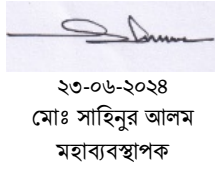 ২৩-০৬-২০২৪
মোঃ সাহিনুর আলম
মহাব্যবস্থাপক